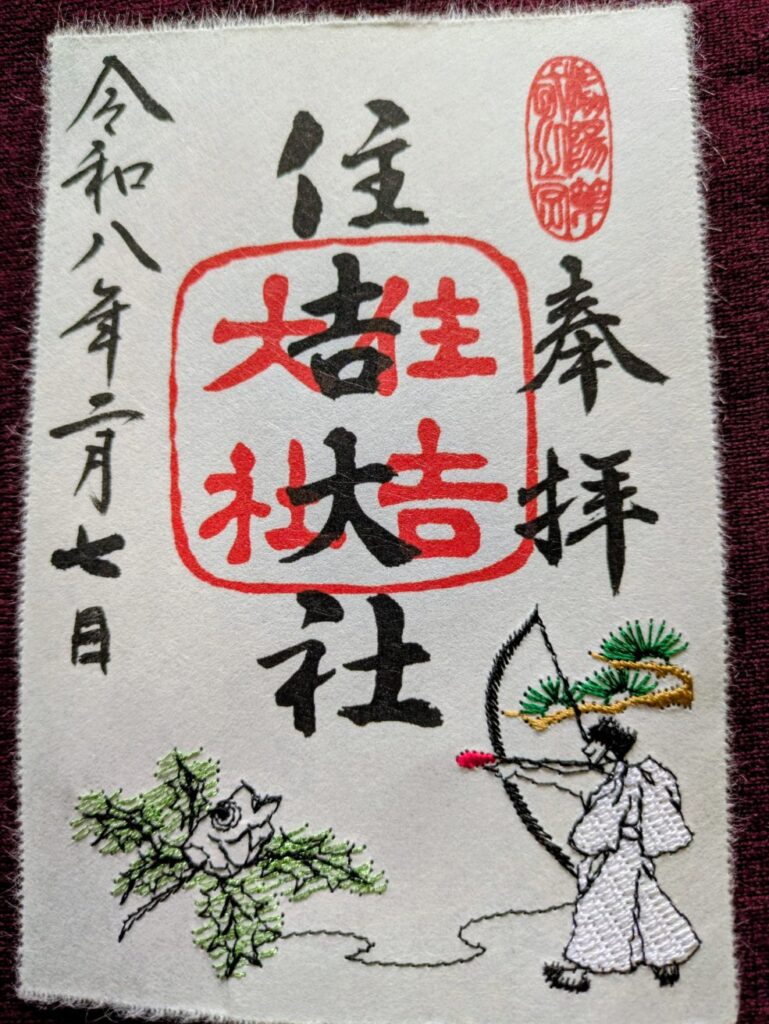 奉拝
住吉大社
住吉
大社
令和八年二月七日